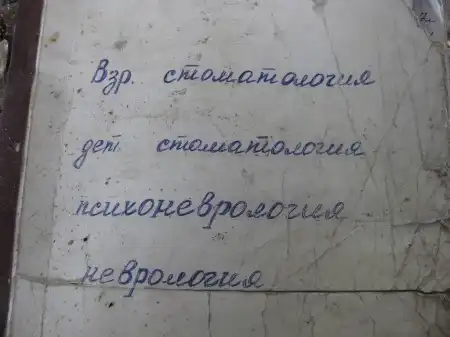 Взр. стоматология
дет. стоматология
психоневрология
неврология